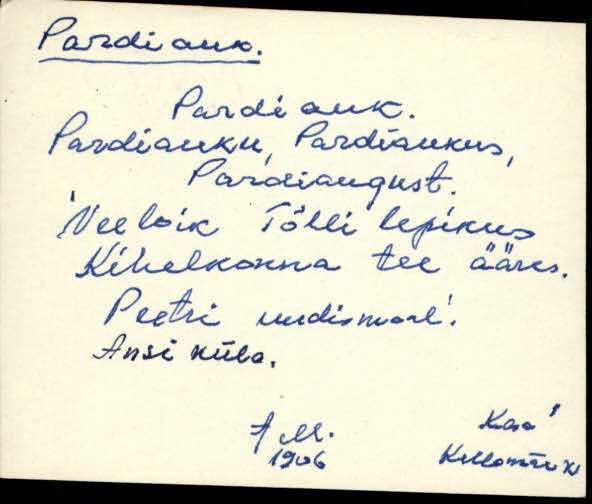 Pardi auk.
Pardi auk.
Pardiauku, Pardiaukus,
Pardiaugust.
Veeloik Tõlli lepikus
Kihelkonna tee ääres.
Peetri uudismaal.
Ansi küla.
M.
1906
Kaa